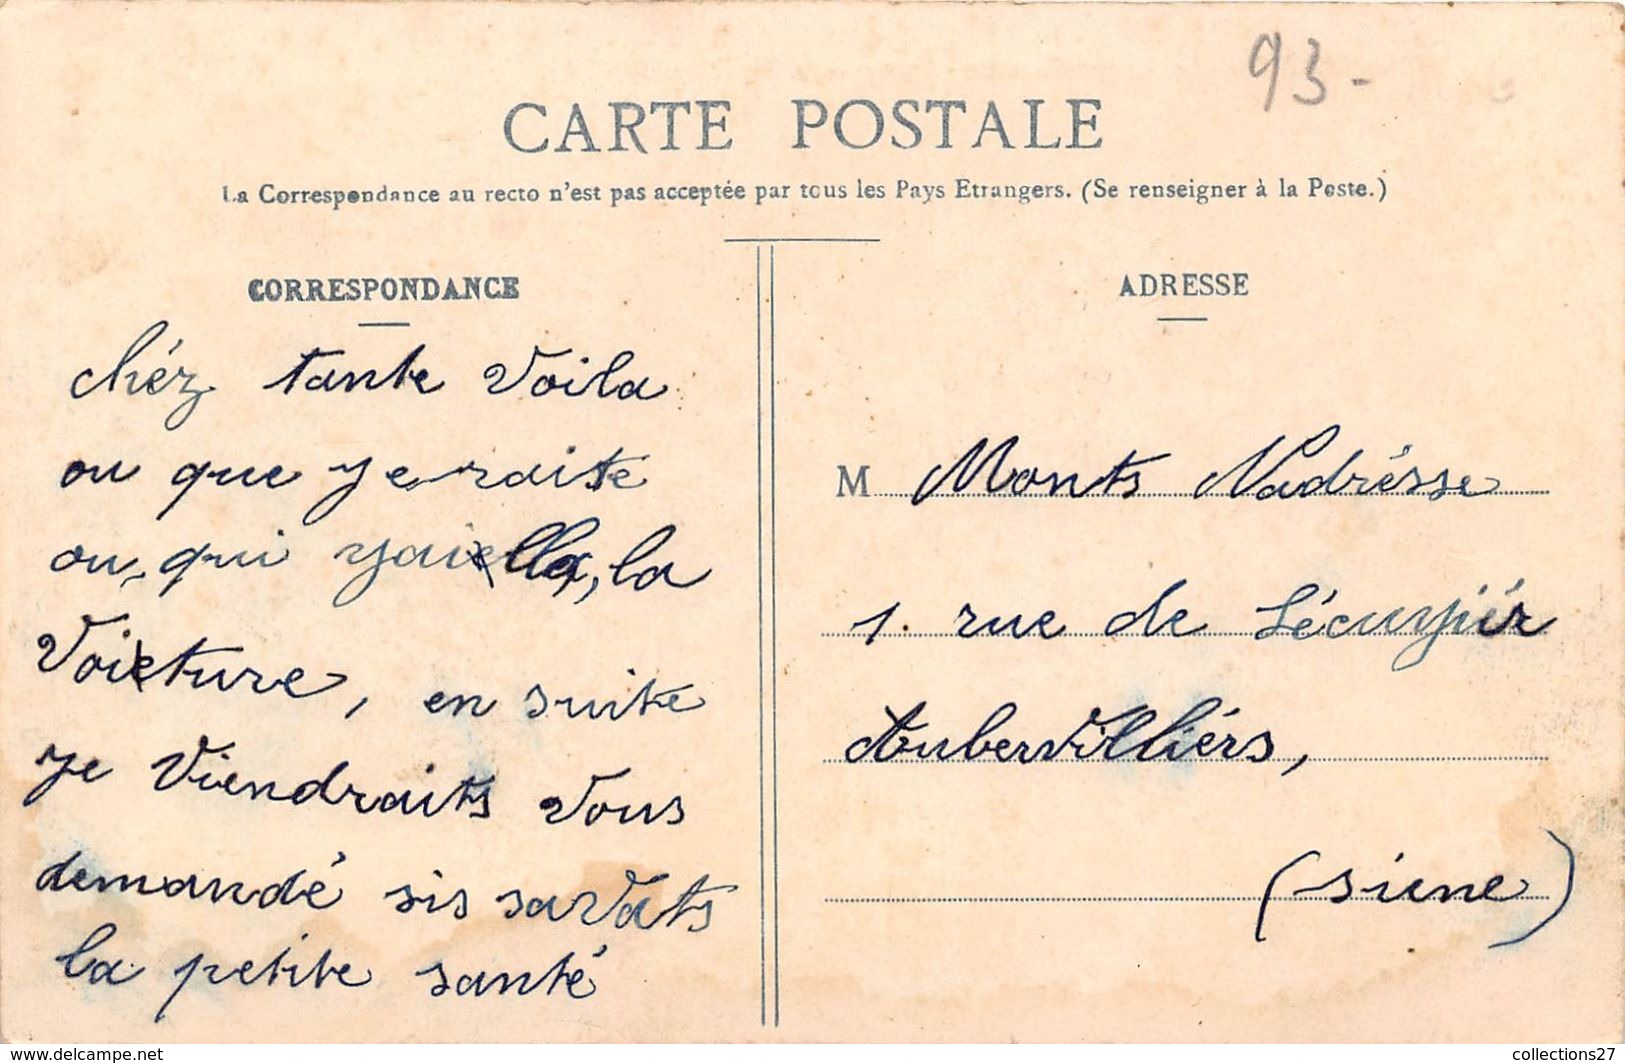 93-
CARTE POSTALE
La Correspondance au recto n'est pas acceptée par tous les Pays Etrangers. (Se renseigner à la Poste.)
CORRESPONDANCE
chéz tante Voila
ou que je raiste
ou, qui la
Voiture, en suite
je Viendraits Vous
demandé sis saVats
la petite santé
ADRESSE
M Monts Nadrésse
1. rue de Lécuyiér
AuberVilliérs,
(siene)
www.delcampe.net
collections27